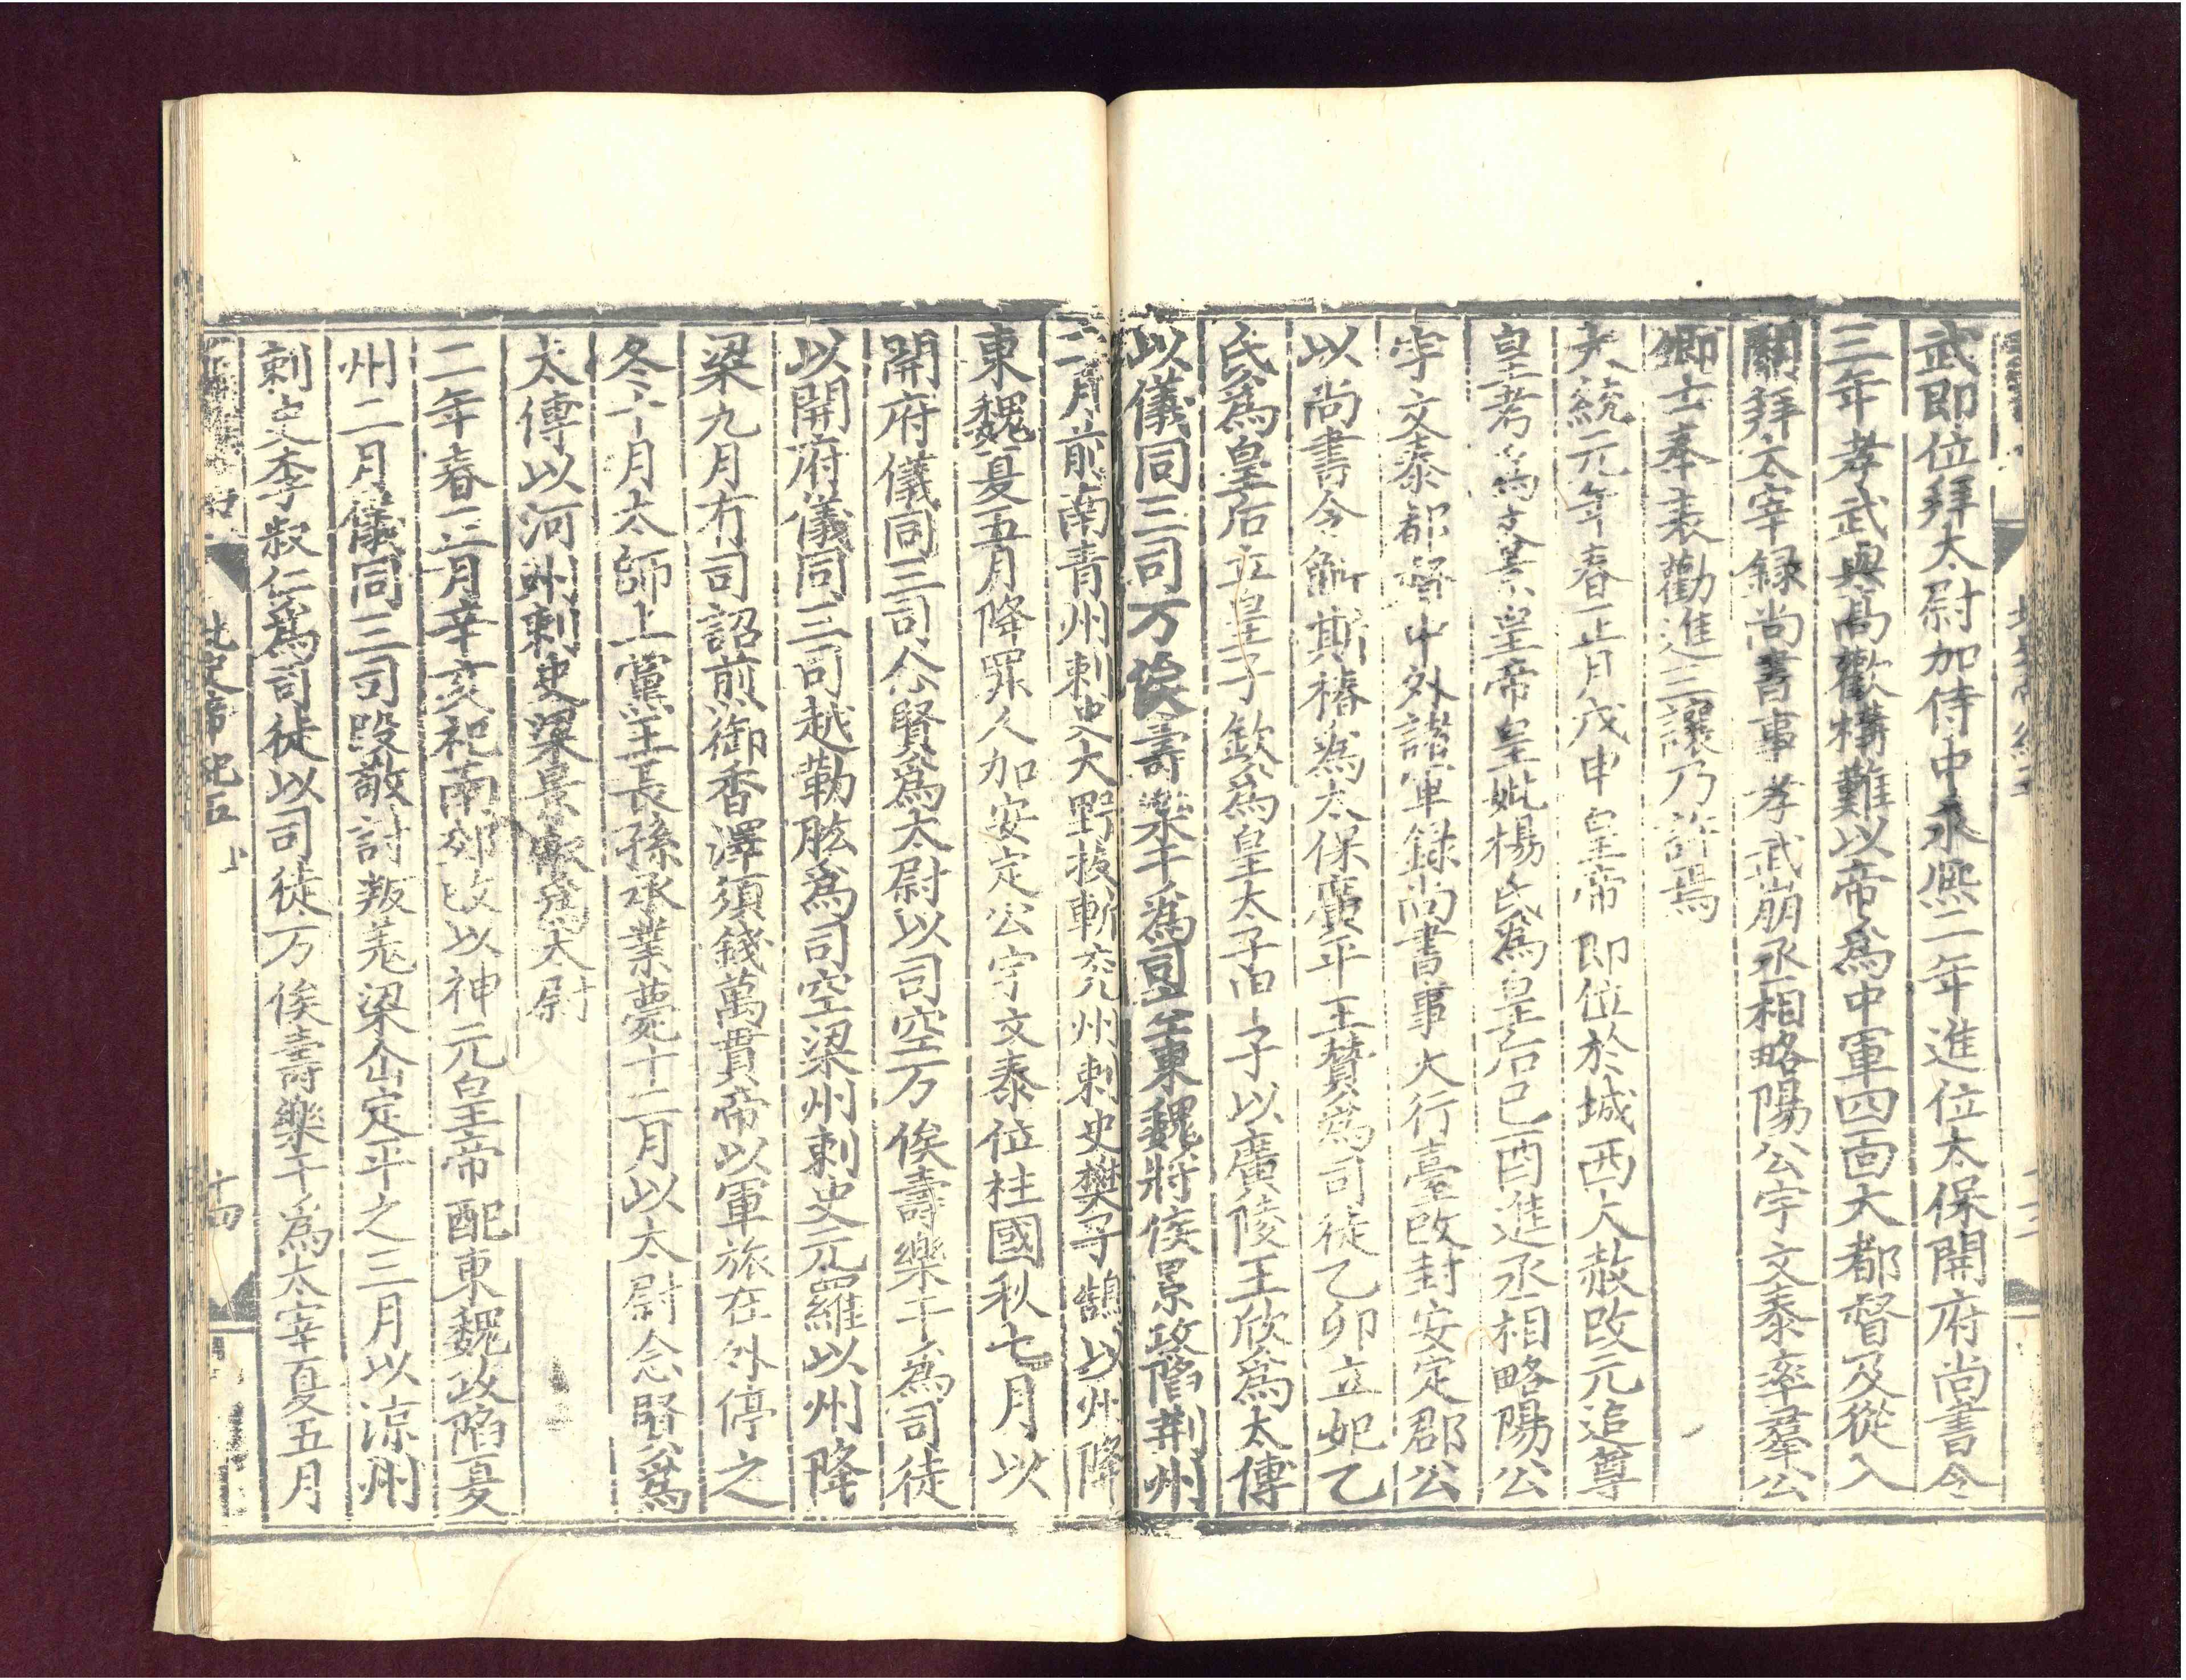 武即位拜太尉加侍中永熙二年進位太保開府尚書令
三年孝武與高歡構難以帝爲中軍四面大都督及從入
關拜太宰録尚書事孝武崩丞相略陽公宇文泰率羣公
卿士奉表勸進三讓乃許焉
大統元年春正月戊申皇帝即位於城西大赦改元追尊
皇考爲文景皇帝皇妣楊氏爲皇后己酉進丞相略陽公
宇文泰都督中外諸軍録尚書事大行臺改封安定郡公
以尚書令斛斯椿爲太保廣平王贊爲司徒乙卯立妃乙
氏爲皇后立皇子欽爲皇太子甲子以廣陵王欣爲太傅
以儀同三司万俟壽樂干爲司空東魏將侯景攻陷荆州
二月前南青州刺史大野拔斬兖州刺史樊子鵠以州降
東魏夏五月降罪人加安定公宇文泰位柱國秋七月以
開府儀同三司念賢爲太尉以司空万俟壽樂干爲司徒
以開府儀同三司越勒肱爲司空梁州刺史元羅以州降
梁九月有司詔煎御香澤須錢萬貫帝以軍旅在外停之
冬十月太師上黨王長孫承業薨十二月以太尉念賢爲
太傅以河州刺史梁景叡爲太尉
二年春正月辛亥祀南郊改以神元皇帝配東魏攻陷夏
州二月儀同三司段敬討叛羌梁仚定平之三月以涼州
刺史李叔仁爲司徒以司徒万俟壽樂干爲太宰夏五月
北史帝紀五
十四